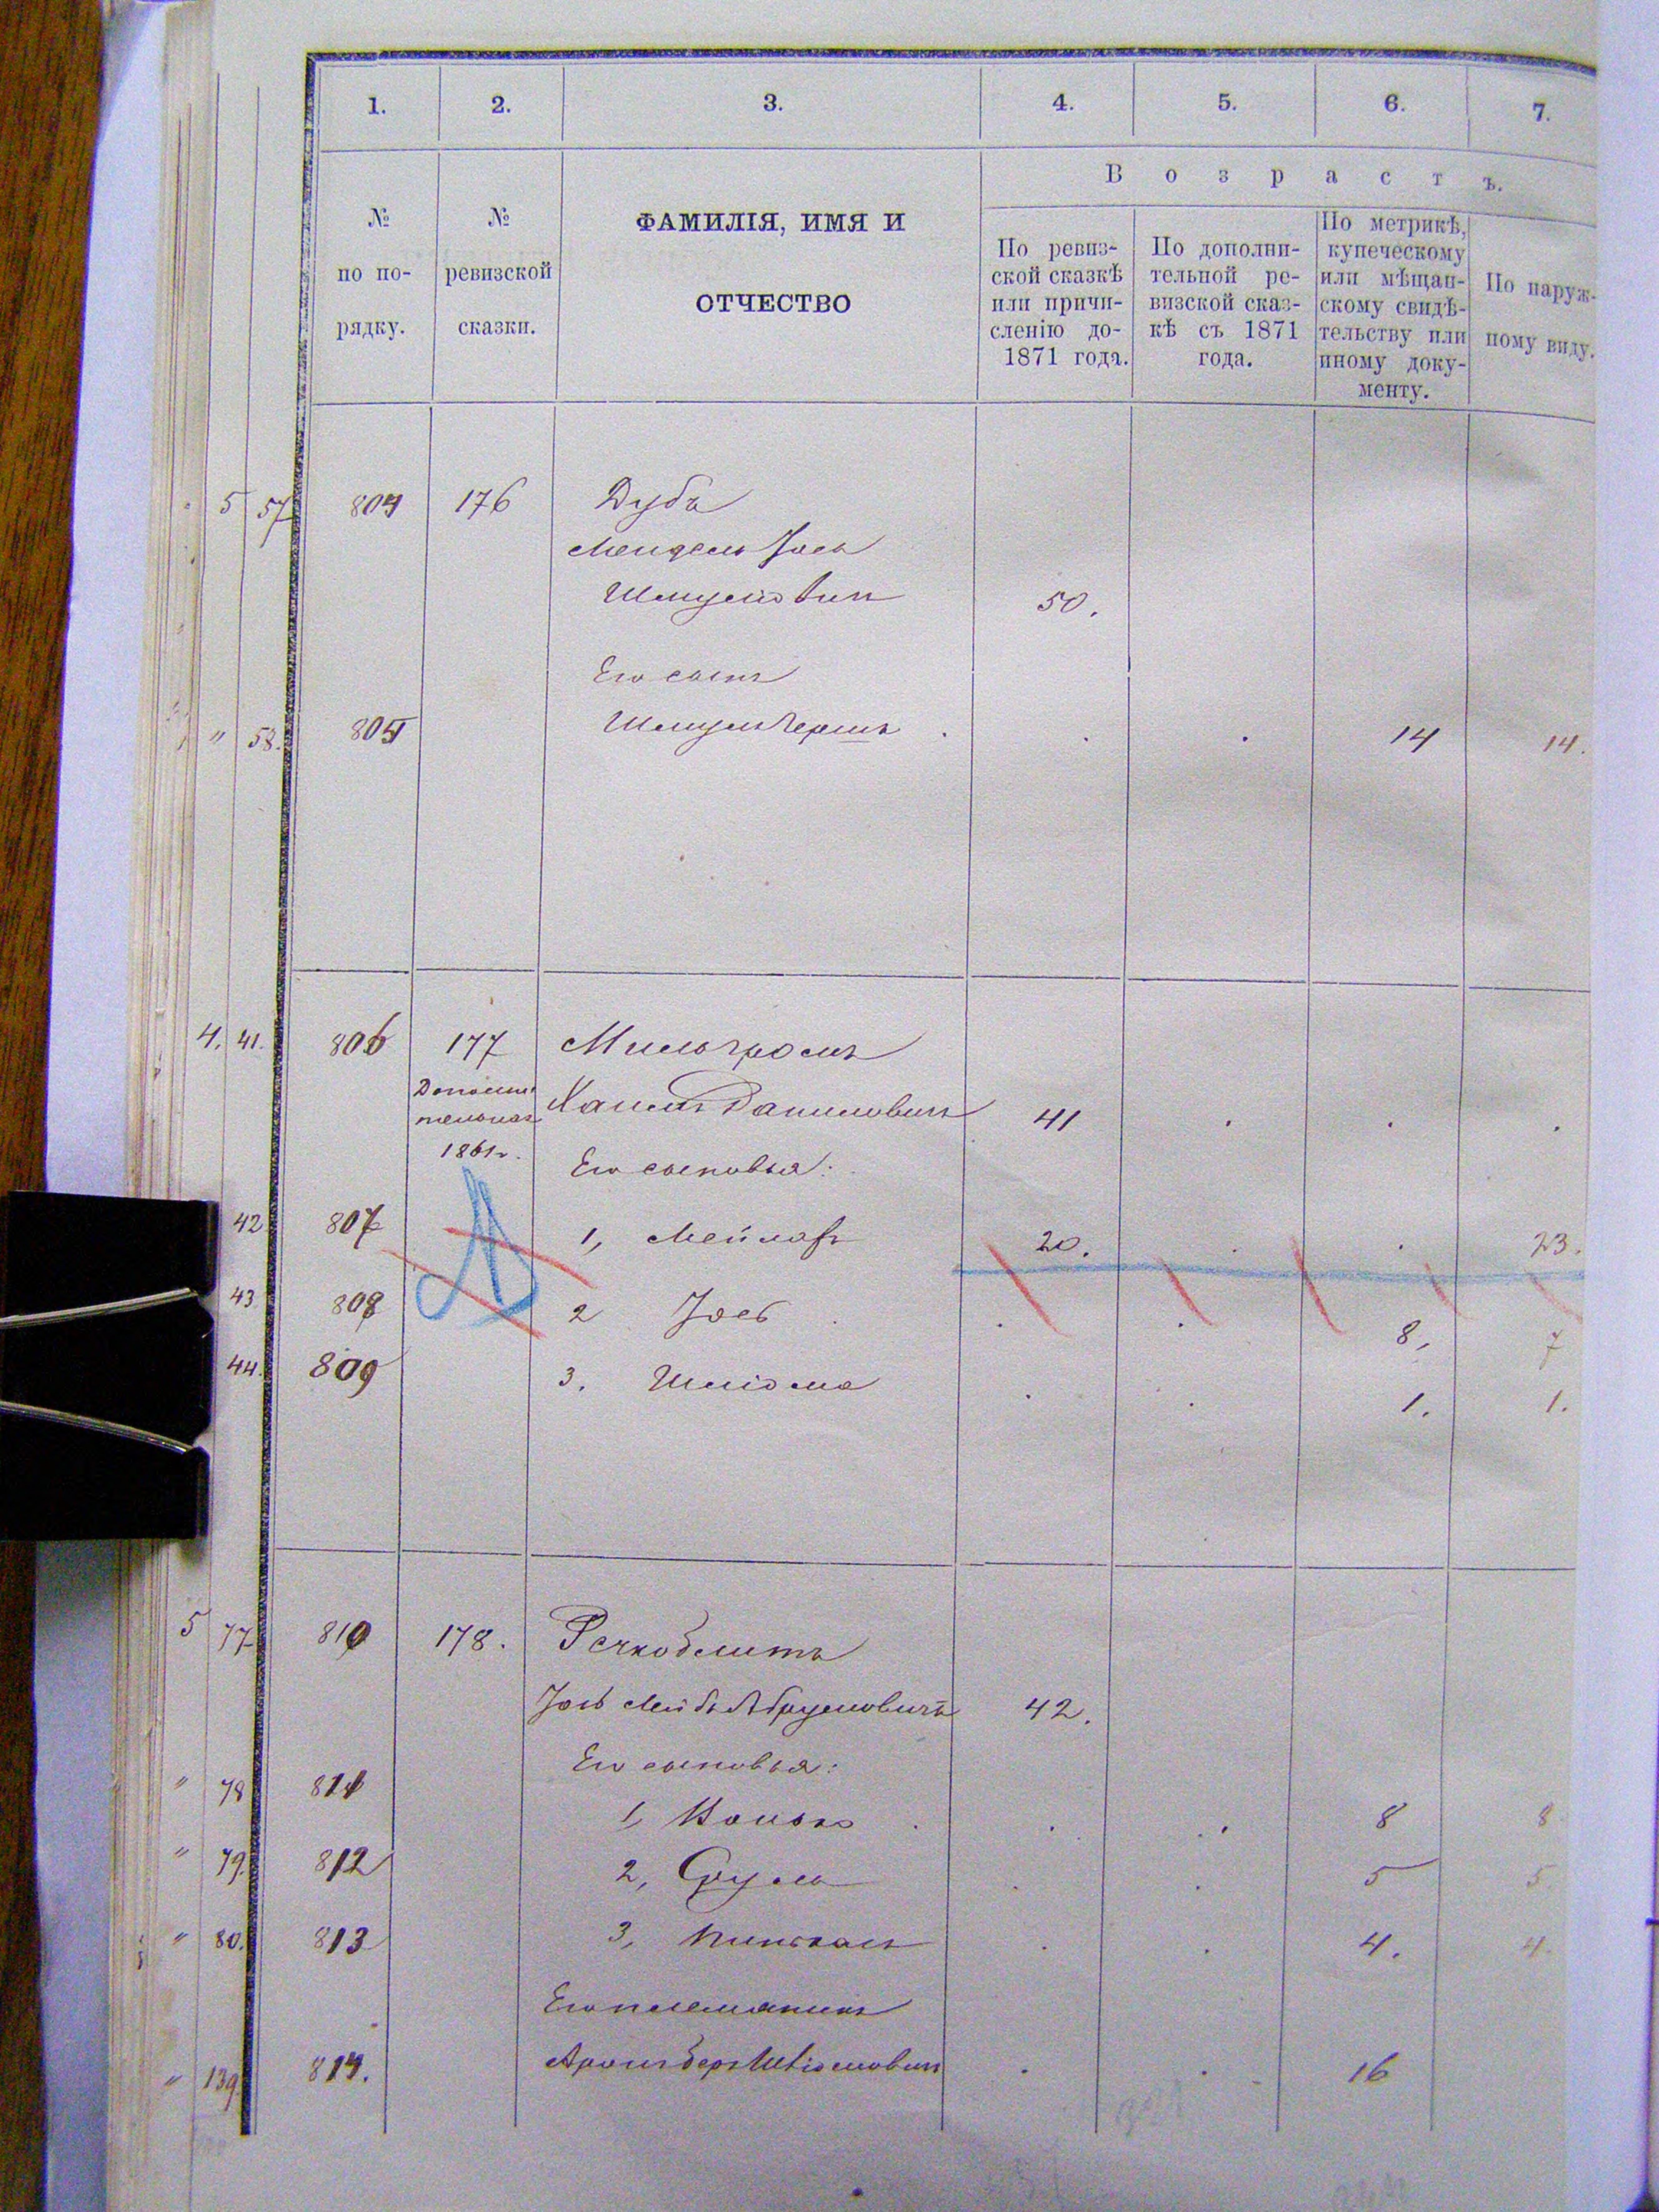 1. 2. 3. 4. 5. 6. 7.
В о з р а с т ъ.
№ по по-рядку.
№ ревизской сказки.
ФАМИЛІЯ, ИМЯ И
ОТЧЕСТВО
По ревиз-
ской сказкѣ
или причи-
сленію до-
1871 года.
По дополни-
тельной ре-
визской сказ-
кѣ съ 1871
года.
По метрикѣ,
купеческому
или мѣщан-
скому свидѣ-
тельству или
иному доку-
менту.
По наруж-
ному виду.
5 57 804 176 Дубъ
Мендель Іось
Шмуліовичъ 50.
Его сынъ
" 58. 805 Шмуль Гершъ 14 14.
4. 41. 806 177 Мильгромъ
Дополни
тельная
1861 г.
Хаимъ Даниловичъ 41
Его сыновья:
42 807 1, Мейлахъ 20. 23.
43 808 2 Іось 8, 7
44. 809 3. Шліома 1. 1.
5 77 810 178.
Іось Лейбъ Абрумовичъ 42.
Его сыновья:
" 78 811 1, 8 8
" 79. 812 2, Сруль 5 5
" 80. 813 3, Пинхасъ 4. 4.
Его племяникъ
" 139. 814. Аронъ Беръ Шліомовичъ 16